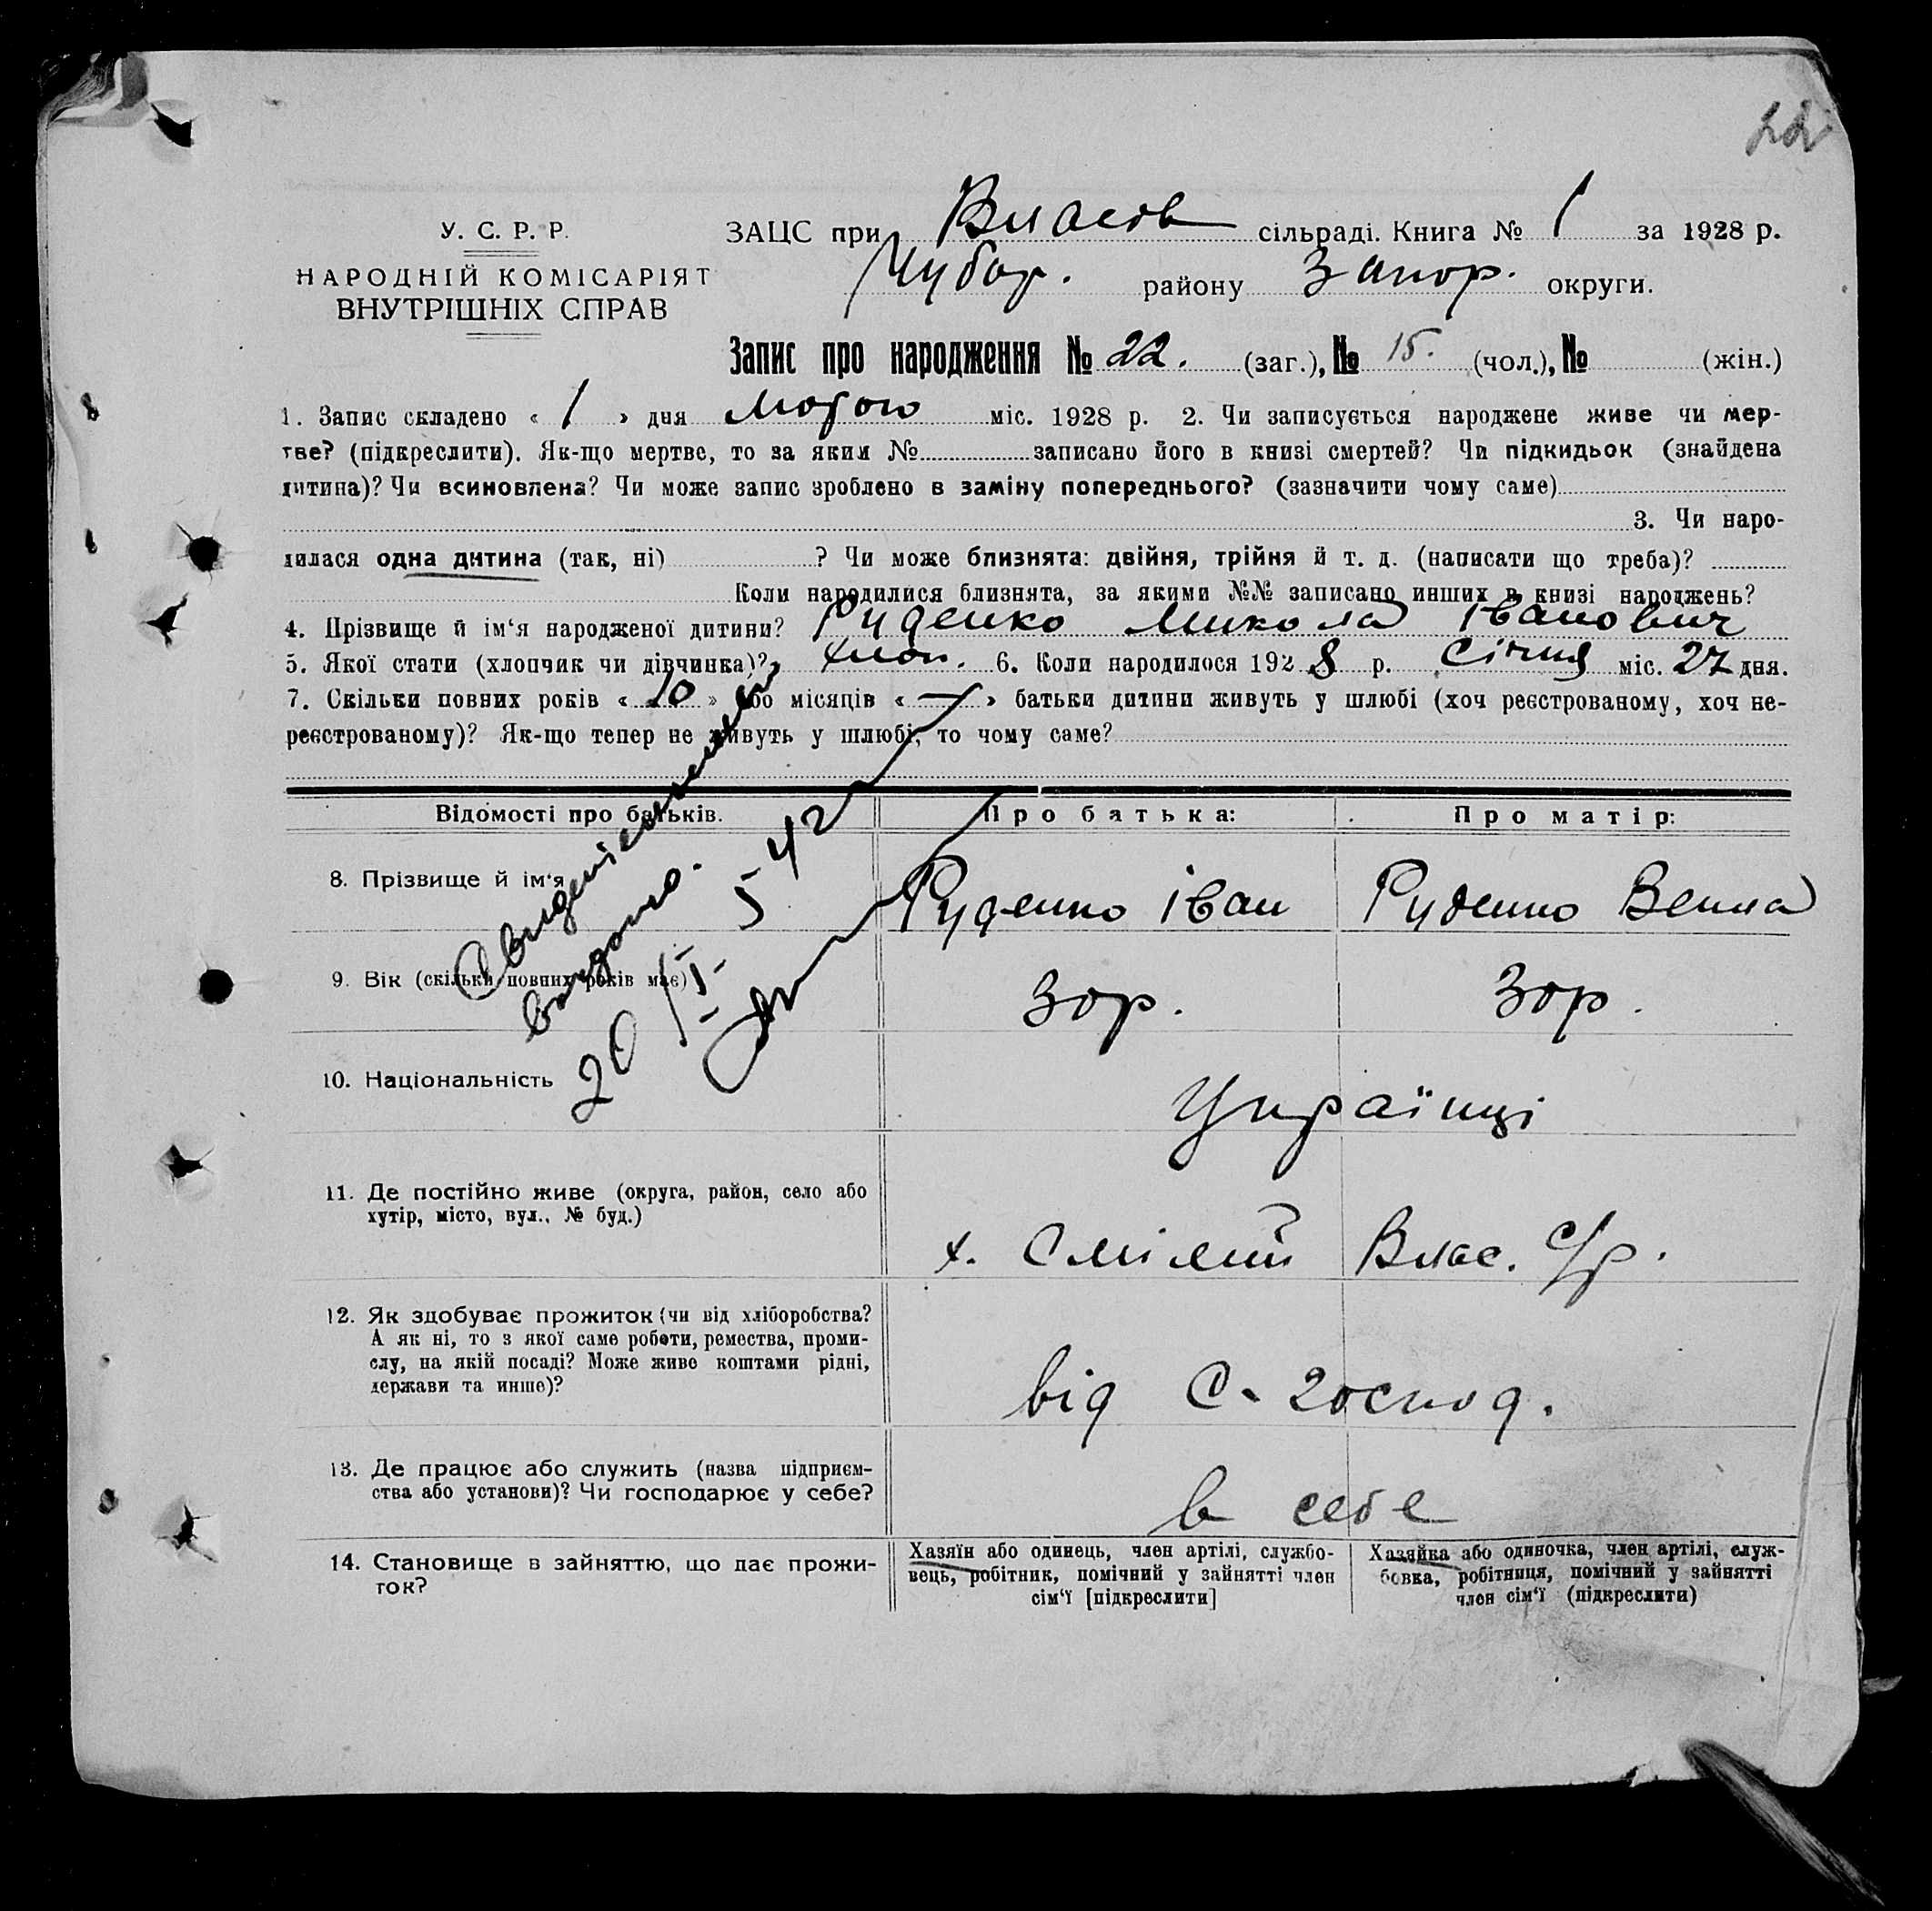 22
У. С. Р. Р.
НАРОДНІЙ КОМІСАРІЯТ
ВНУТРІШНІХ СПРАВ
ЗАЦС при Власов сільраді. Книга № 1 за 1928 р.
Чубар. району Запор. округи.
Запис про народження № 22. (заг.), № 15. (чол.), № (жін.)
1. Запис складено « 1 » дня Лютого міс. 1928 р. 2. Чи записується народжене живе чи мер-
тве? (підкреслити). Як-що мертве, то за яким № записано його в книзі смертей? Чи підкидьок (знайдена
дитина)? Чи всиновлена? Чи може запис зроблено в заміну попереднього? (зазначити чому саме)
3. Чи наро-
дилася одна дитина (так, ні) ? Чи може близнята: двійня, трійня й т. д. (написати що треба)?
Коли народилися близнята, за якими №№ записано инших в книзі народжень?
4. Прізвище й ім‘я народженої дитини? Руденко Микола Іванович
5. Якої стати (хлопчик чи дівчинка)? хлоп. 6. Коли народилося 1928 р. Січня міс. 27 дня.
7. Скільки повних років « 10 » або місяців « — » батьки дитини живуть у шлюбі (хоч реєстрованому, хоч не-
реєстрованому)? Як-що тепер не живуть у шлюбі, то чому саме?
Відомості про батьків.
Про батька:
Про матір:
8. Прізвище й ім‘я
Руденко Іван
Руденко
9. Вік (скільки повних років має)
30р.
30р.
видано.
20/V- 42
10. Національність
Українці
11. Де постійно живе (округа, район, село або
хутір, місто, вул., № буд.)
х. Смілий Влас. с/р.
12. Як здобуває прожиток (чи від хліборобства?
А як ні, то з якої саме роботи, ремества, проми-
слу, на якій посаді? Може живе коштами рідні,
держави та инше)?
від С-господ.
13. Де працює або служить (назва підприєм-
ства або установи)? Чи господарює у себе?
в себе
14. Становище в зайняттю, що дає прожи-
ток?
Хазяїн або одинець, член артілі, службо-
вець, робітник, помічний у зайнятті член
сім‘ї [підкреслити]
Хазяйка або одиночка, член артілі, служ-
бовка, робітниця, помічний у зайнятті
член сім‘ї (підкреслити)